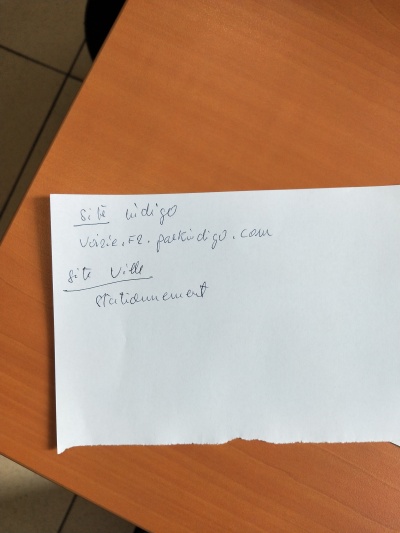 site indigo
voirie.FR.parkindigo.com
site Ville
stationnement